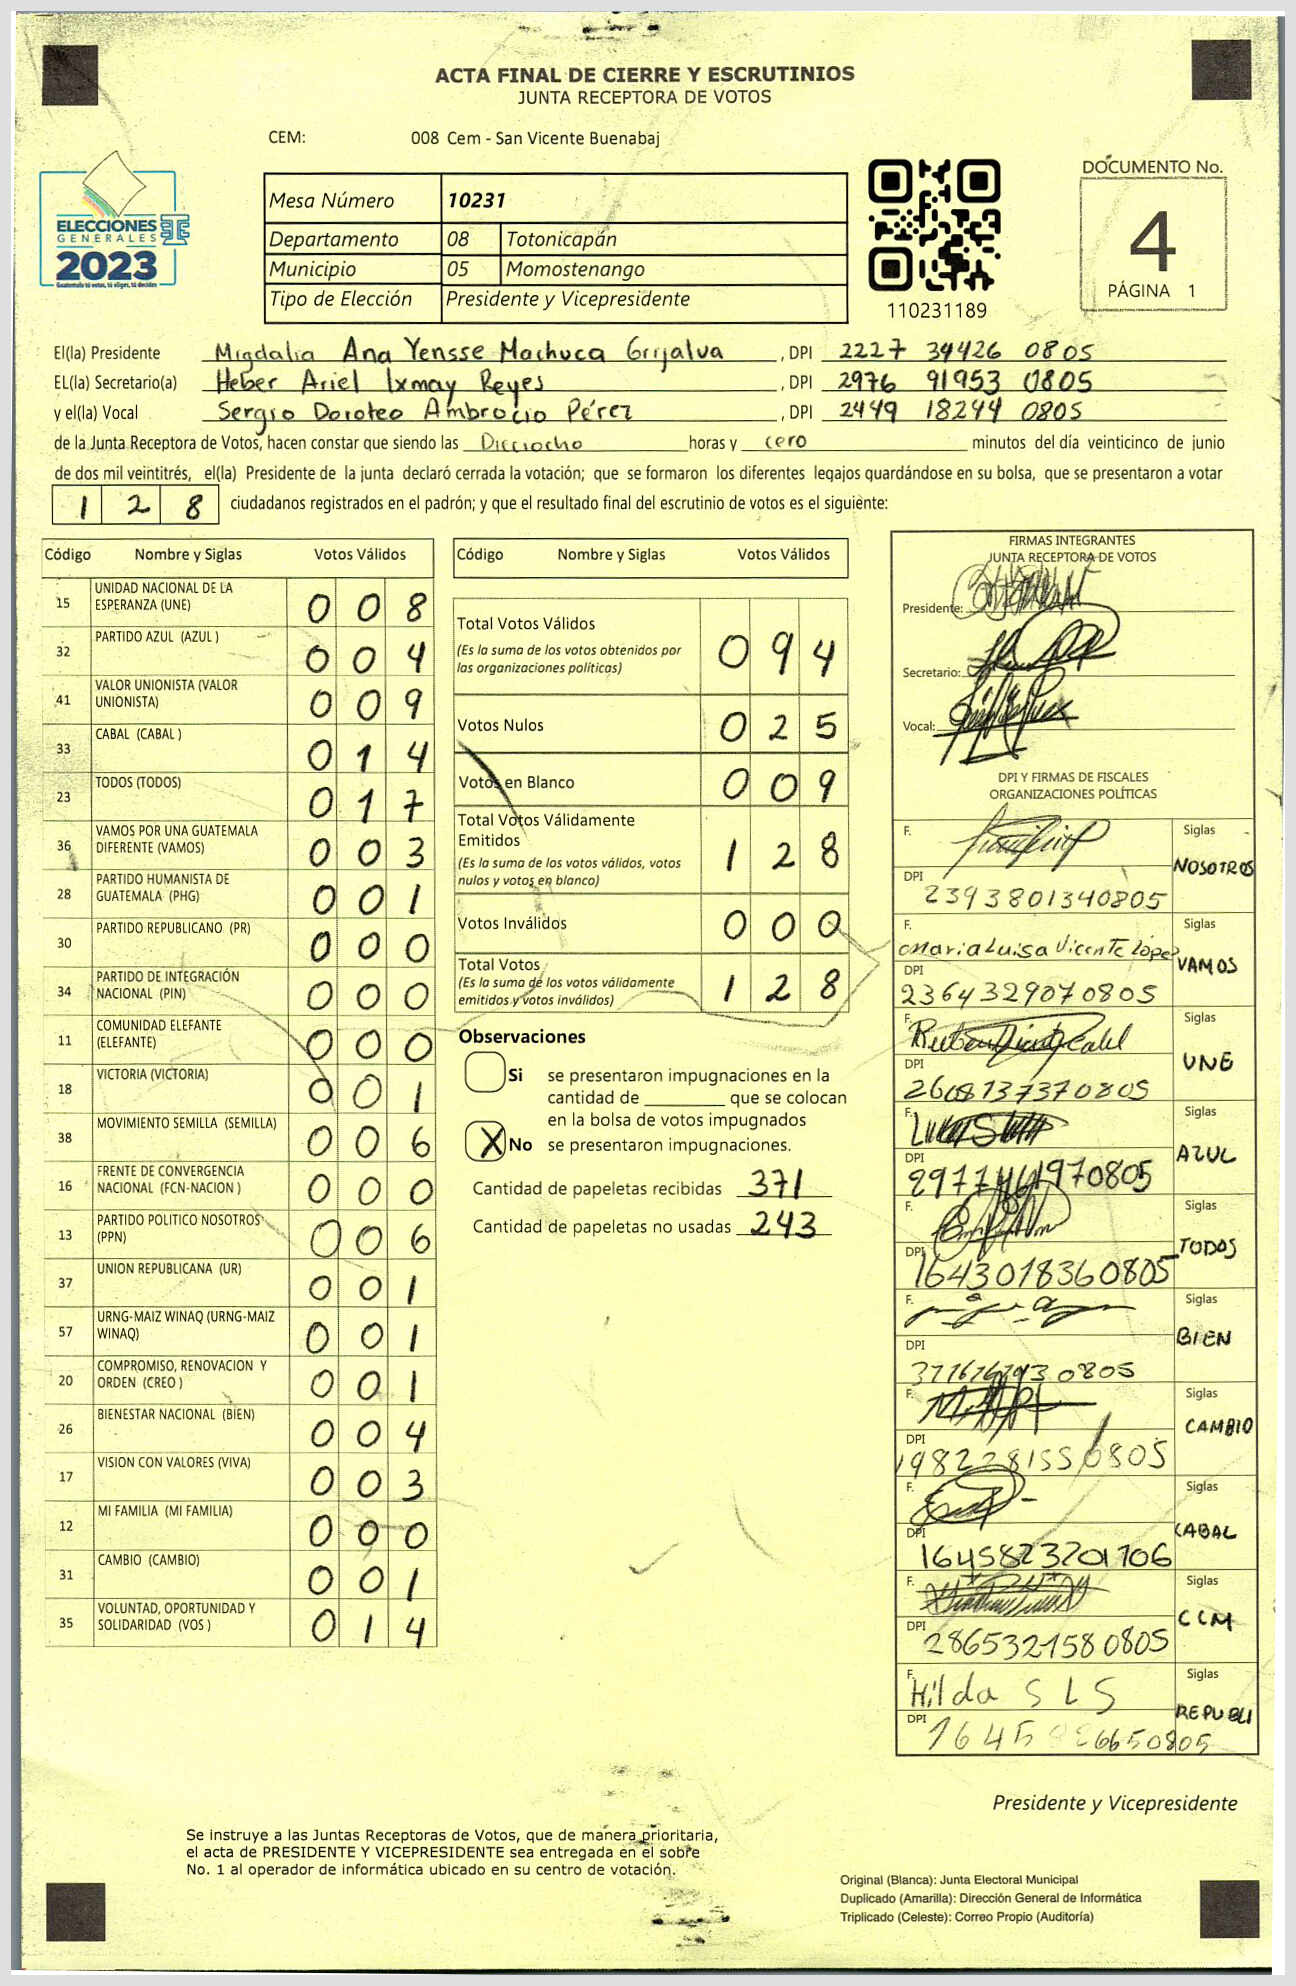 ACTA FINAL DE CIERRE Y ESCRUTINIOS
JUNTA RECEPTORA DE VOTOS
CEM: 008 Cem - San Vicente Buenabaj
ELECCIONES
GENERALES
2023
Guatemala tú votas, tú eliges, tú decides
Mesa Número 10231
Departamento 08 Totonicapán
Municipio 05 Momostenango
Tipo de Elección Presidente y Vicepresidente
110231189
DOCUMENTO No.
4
PÁGINA 1
El(la) Presidente Migdalia Ana Yensse Machuca Grijalva , DPI 2227 34426 0805
EL(la) Secretario(a) Heber Ariel Ixmay Reyes , DPI 2976 91953 0805
y el(la) Vocal Sergio Doroteo Ambrocio Pérez , DPI 2449 18244 0805
de la Junta Receptora de Votos, hacen constar que siendo las Dieciocho horas y cero minutos del día veinticinco de junio
de dos mil veintitrés, el(la) Presidente de la junta declaró cerrada la votación; que se formaron los diferentes legajos quardándose en su bolsa, que se presentaron a votar
1 2 8 ciudadanos registrados en el padrón; y que el resultado final del escrutinio de votos es el siguiente:
Código Nombre y Siglas Votos Válidos
15 UNIDAD NACIONAL DE LA ESPERANZA (UNE) 0 0 8
32 PARTIDO AZUL (AZUL ) 0 0 4
41 VALOR UNIONISTA (VALOR UNIONISTA) 0 0 9
33 CABAL (CABAL ) 0 1 4
23 TODOS (TODOS) 0 1 7
36 VAMOS POR UNA GUATEMALA DIFERENTE (VAMOS) 0 0 3
28 PARTIDO HUMANISTA DE GUATEMALA (PHG) 0 0 1
30 PARTIDO REPUBLICANO (PR) 0 0 0
34 PARTIDO DE INTEGRACIÓN NACIONAL (PIN) 0 0 0
11 COMUNIDAD ELEFANTE (ELEFANTE) 0 0 0
18 VICTORIA (VICTORIA) 0 0 1
38 MOVIMIENTO SEMILLA (SEMILLA) 0 0 6
16 FRENTE DE CONVERGENCIA NACIONAL (FCN-NACION ) 0 0 0
13 PARTIDO POLITICO NOSOTROS (PPN) 0 0 6
37 UNION REPUBLICANA (UR) 0 0 1
57 URNG-MAIZ WINAQ (URNG-MAIZ WINAQ) 0 0 1
20 COMPROMISO, RENOVACION Y ORDEN (CREO ) 0 0 1
26 BIENESTAR NACIONAL (BIEN) 0 0 4
17 VISION CON VALORES (VIVA) 0 0 3
12 MI FAMILIA (MI FAMILIA) 0 0 0
31 CAMBIO (CAMBIO) 0 0 1
35 VOLUNTAD, OPORTUNIDAD Y SOLIDARIDAD (VOS ) 0 1 4
Código Nombre y Siglas Votos Válidos
Total Votos Válidos 0 9 4
(Es la suma de los votos obtenidos por
las organizaciones políticas)
Votos Nulos 0 2 5
Votos en Blanco 0 0 9
Total Votos Válidamente
Emitidos 1 2 8
(Es la suma de los votos válidos, votos
nulos y votos en blanco)
Votos Inválidos 0 0 0
Total Votos 1 2 8
(Es la suma de los votos válidamente
emitidos y votos inválidos)
Observaciones
Si se presentaron impugnaciones en la
cantidad de ________ que se colocan
en la bolsa de votos impugnados
X No se presentaron impugnaciones.
Cantidad de papeletas recibidas 371
Cantidad de papeletas no usadas 243
FIRMAS INTEGRANTES
JUNTA RECEPTORA DE VOTOS
Presidente:
Secretario:
Vocal:
DPI Y FIRMAS DE FISCALES
ORGANIZACIONES POLÍTICAS
F. Siglas NOSOTROS
DPI 2393801340805
F. Maria Luisa Vicente López Siglas VAMOS
DPI 2364329070805
F. Siglas UNE
DPI 2608737370805
F. Siglas AZUL
DPI
F. Siglas TODOS
DPI 1643018360805
F. Siglas BIEN
DPI
F. Siglas CAMBIO
DPI
F. Siglas CABAL
DPI 1645823201706
F. Siglas CCM
DPI 2865321580805
F. Hilda S L S Siglas REPUBLI
DPI
Presidente y Vicepresidente
Se instruye a las Juntas Receptoras de Votos, que de manera prioritaria,
el acta de PRESIDENTE Y VICEPRESIDENTE sea entregada en el sobre
No. 1 al operador de informática ubicado en su centro de votación.
Original (Blanca): Junta Electoral Municipal
Duplicado (Amarilla): Dirección General de Informática
Triplicado (Celeste): Correo Propio (Auditoría)